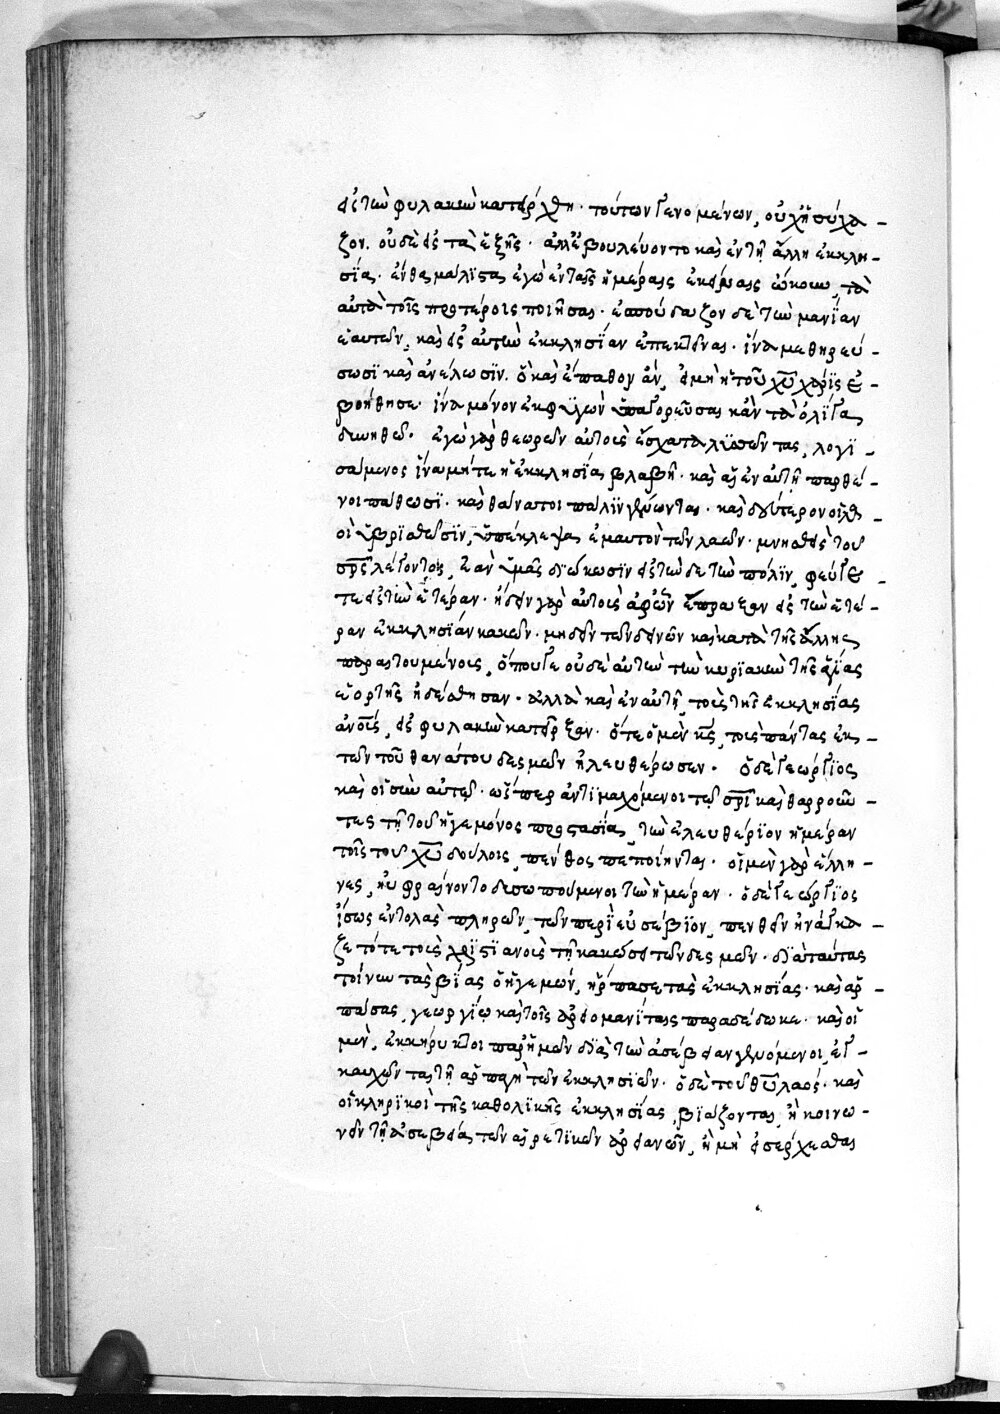 εἰς τὴν φυλακὴν κατείρχθη· τούτων γενομένων, οὐχ ἡσύχα-
ζον. οὐδὲ εἰς τὰ ἑξῆς· ἀλλ' ἐβουλεύοντο καὶ ἐν τῇ ἄλλῃ ἐκκλη-
σίᾳ· ἔνθα μάλιστα ἐγὼ ἐν ταῖς ἡμέραις ἐκείναις ᾤκουν, τὰ
αὐτὰ τοῖς προτέροις ποιῆσαι· ἐσπούδαζον δὲ τὴν μανίαν
ἑαυτῶν, καὶ εἰς αὐτὴν ἐκκλησίαν ἐπεκτεῖναι· ἵνα με θηρεύ-
σωσι καὶ ἀνέλωσιν. ὃ καὶ ἔπαθον ἄν, εἰ μὴ ἡ τοῦ χυ χάρις ἐ-
βοήθησε· ἵνα μόνον ἐκφυγὼν ἀπαγορεῦσαι κἂν τὰ ὀλίγα
δυνηθῶ· ἐγὼ γὰρ θεωρῶν αὐτοὺς ἔσχατα λυσσῶντας, λογι-
σάμενος ἵνα μήτε ἡ ἐκκλησία βλαβῇ· καὶ αἱ ἐν αὐτῇ παρθέ-
νοι πάθωσι· καὶ θάνατοι πάλιν γένωνται· καὶ δεύτερον οἱ λα-
οὶ ὑβρισθῶσιν, ὑπέκλεψα ἐμαυτὸν τῶν λαῶν· μνησθεὶς τοῦ
σρς λέγοντος, ἐὰν ὑμᾶς διώκωσιν εἰς τὴν δε τὴν πόλιν, φεύγε-
τε εἰς τὴν ἑτέραν· ᾔδειν γὰρ αὐτοὺς ἀφ' ὧν ἔπραξαν εἰς τὴν ἑτέ-
ραν ἐκκλησίαν κακῶν· μηδὲν τῶν δεινῶν καὶ κατὰ τῆς ἄλλης
παραιτουμένους, ὅπου γε οὐδὲ αὐτὴν τὴν κυριακὴν τῆς ἁγίας
ἑορτῆς ᾐδέσθησαν· ἀλλὰ καὶ ἐν αὐτῇ τοὺς τῆς ἐκκλησίας
ἀνους, εἰς φυλακὴν κατεῖρξαν· ὅτε ὁ μὲν κς, τοὺς πάντας ἐκ
τῶν τοῦ θανάτου δεσμῶν ἠλευθέρωσεν· ὁ δὲ γεώργιος
καὶ οἱ σὺν αὐτῷ· ὥσπερ ἀντιμαχόμενοι τῷ σρι καὶ θαρροῦν-
τες τῇ τοῦ ἡγεμόνος προστασίᾳ, τὴν ἐλευθέριον ἡμέραν
τοῖς τοῦ χυ δούλοις, πένθος πεποίηνται· οἱ μὲν γὰρ ἕλλη-
νες, ηὐφραίνοντο δυσωπούμενοι τὴν ἡμέραν· ὁ δὲ γεώργιος
ἴσως ἐντολὰς πληρῶν, τῶν περὶ εὐσέβιον, πενθεῖν ἠνάγκα-
ζε τότε τοὺς χριστιανοὺς τῇ κακώσει τῶν δεσμῶν· διὰ ταύτας
τοίνυν τὰς βίας ὁ ἡγεμών, ἥρπασε τὰς ἐκκλησίας· καὶ ἁρ-
πάσας, γεωργίῳ καὶ τοῖς ἀρειομανίταις παραδέδωκε· καὶ οἱ
μὲν, ἐκκήρυκτοι παρ' ἡμῶν διὰ τὴν ἀσέβειαν γενόμενοι, ἐγ-
καυχῶνται τῇ ἁρπαγῇ τῶν ἐκκλησιῶν· ὁ δὲ τοῦ θυ λαὸς· καὶ
οἱ κληρικοὶ τῆς καθολικῆς ἐκκλησίας, βιάζονται, ἢ κοινω-
νεῖν τῇ ἀσεβείᾳ τῶν αἱρετικῶν ἀρειανῶν, ἢ μὴ εἰσέρχεσθαι